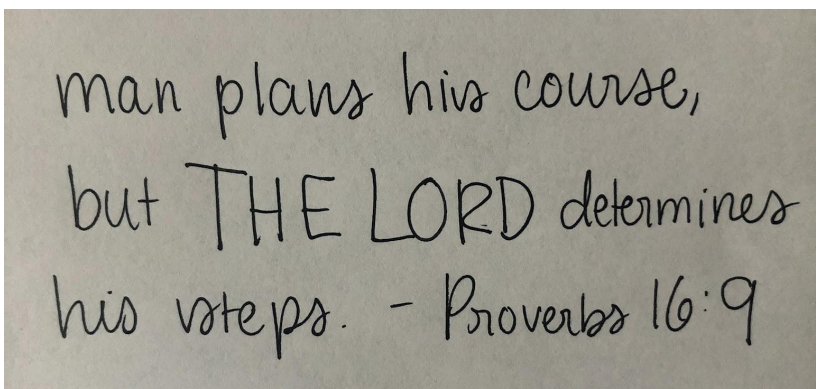 man plans his course,
but THE LORD determines
his steps. - Proverbs 16:9